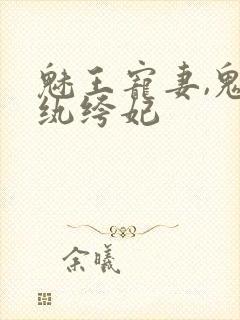 魅王宠妻,鬼
纨绔妃
余曦